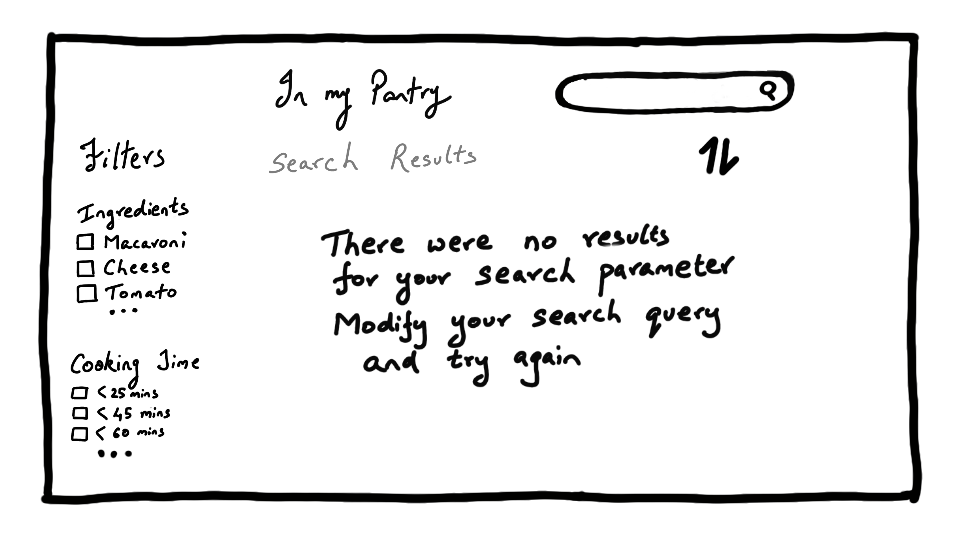 In my Pantry
Filters
Search Results
Ingredients
Macaroni
Cheese
Tomato
...
Cooking Time
< 25 mins
< 45 mins
< 60 mins
...
There were no results
for your search parameter
Modify your search query
and try again